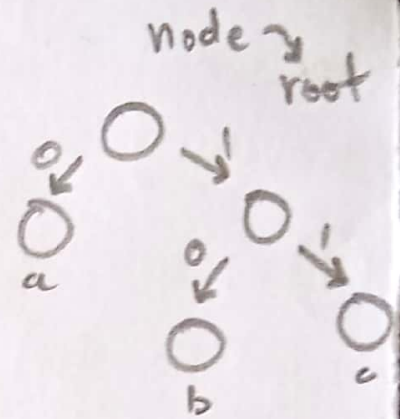 node
root
0 1
a
0 1
b
c